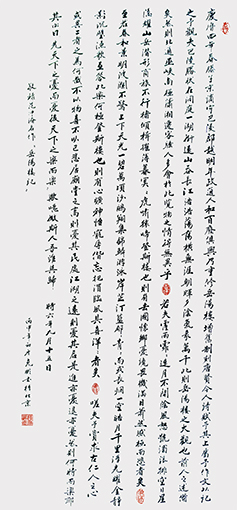 慶曆四年春滕子京謫守巴陵郡越明年政通人和百廢俱興乃重修岳陽樓增其舊制刻唐賢今人詩賦于其上屬予作文以記
之予觀夫巴陵勝狀在洞庭一湖銜遠山吞長江浩浩湯湯橫無涯朝暉夕陰氣象萬千此則岳陽樓之大觀也前人之述備
矣然則北通巫峽南極瀟湘遷客騷人多會於此覽物之情得無異乎 若夫霪雨霏霏連月不開陰風怒號濁浪排空日星
隱耀山岳潛形商旅不行檣傾楫摧薄暮冥冥虎嘯猿啼登斯樓也則有去國懷鄉憂讒畏譏滿目蕭然感極而悲者矣
至若春和景明波瀾不驚上下天光一碧萬頃沙鷗翔集錦鱗游泳岸芷汀蘭郁郁青青而或長煙一空皓月千里浮光躍金靜
影沉璧漁歌互答此樂何極登斯樓也則有心曠神怡寵辱偕忘把酒臨風其喜洋洋者矣 嗟夫予嘗求古仁人之心
或異二者之為何哉不以物喜不以己悲居廟堂之高則憂其民處江湖之遠則憂其君是進亦憂退亦憂然則何時而樂耶
其必曰先天下之憂而憂後天下之樂而樂歟噫微斯人吾誰與歸 時六年九月十五日
敬錄范仲淹名作岳陽樓記
丙申